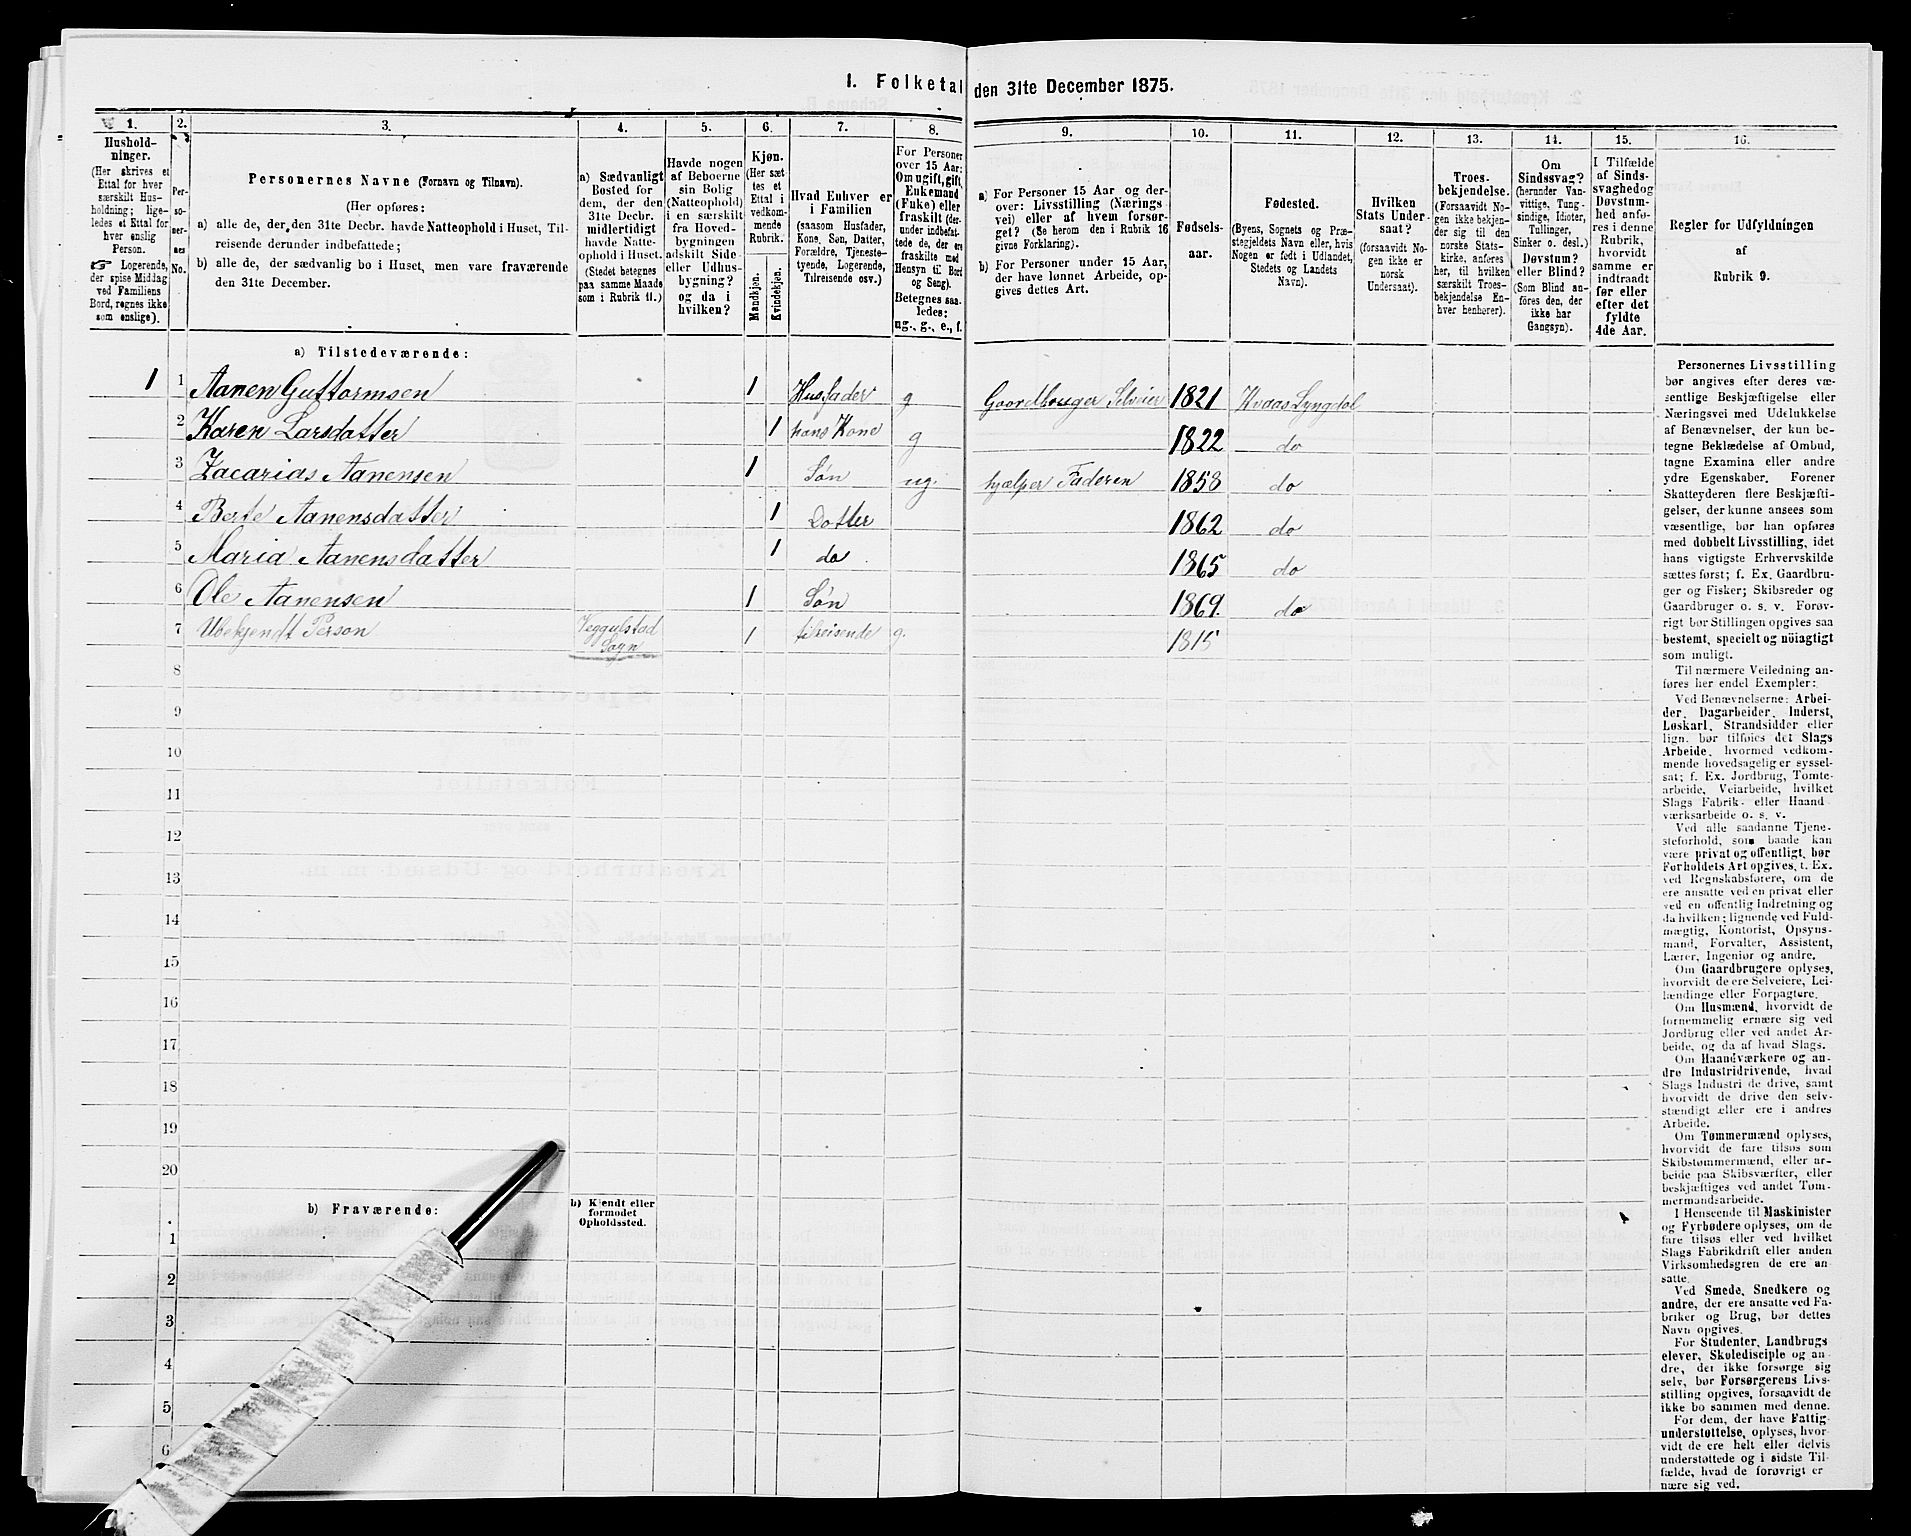 I. Folketal den 31te December 1875.
1. 2. 3. 4. 5. 6. 7. 8. 9. 10. 11. 12. 13. 14. 15. 16.
Hushold-
ninger.
(Her skrives et
Ettal for hver
særskilt Hus-
holdning; lige-
ledes et Ettal for
hver enslig
Person.
☞ Logerende,
der spise Middag
ved Familiens
Bord, regnes ikke
som enslige).
Per-
so-
ner-
nes
No.
Personernes Navne (Fornavn og Tilnavn).
(Her opføres:
a) alle de, der den 31te Decbr. havde Natteophold i Huset, Til-
reisende derunder indbefattede;
b) alle de, der sædvanlig bo i Huset, men vare fraværende
den 31te December.
a) Sædvanligt
Bosted for
dem, der den
31te Decbr.
midlertidigt
havde Natte-
ophold i Huset.
(Stedet betegnes
paa samme Maade
som i Rubrik 11.)
Havde nogen
af Beboerne
sin Bolig
(Natteophold)
i en særskilt
fra Hoved-
bygningen
adskilt Side-
eller Udhus-
bygning?
og da i
hvilken?
Kjøn.
(Her sæt-
tes et
Ettal i
vedkom-
mende
Rubrik.
Mandkjøn.
Kvindekjøn.
Hvad Enhver er
i Familien
(saasom Husfader,
Kone, Søn, Datter,
Forældre, Tjeneste-
tyende, Logerende,
Tilreisende osv.)
For Personer
over 15 Aar:
Om ugift, gift,
Enkemand
(Enke) eller
fraskilt (der-
under indbefat-
tede de, der ere
fraskilte med
Hensyn til Bord
og Seng).
Betegnes saa-
ledes:
ug., g., e., f.
a) For Personer 15 Aar og der-
over: Livsstilling (Nærings-
vei) eller af hvem forsør-
get? (Se herom den i Rubrik 16
givne Forklaring).
b) For Personer under 15 Aar,
der have lønnet Arbeide, op-
gives dettes Art.
Fødsels-
aar.
Fødested.
(Byens, Sognets og Præ-
stegjeldets Navn eller, hvis
Nogen er født i Udlandet,
Stedets og Landets
Navn).
Hvilken
Stats Under-
saat?
(forsaavidt No-
gen ikke er
norsk
Undersaat).
Troes-
bekjendelse.
(Forsaavidt No-
gen ikke bekjen-
der sig til den
norske Stats-
kirke, anføres
her, til hvilken
særskilt Troes-
bekjendelse En-
hver henhører).
Om
Sindssvag?
(herunder Van-
vittige, Tung-
sindige, Idioter,
Tullinger,
Sinker o. desl.)
Døvstum?
eller Blind?
(Som Blind an-
føres den, der
ikke har
Gangsyn).
I Tilfælde
af Sinds-
svaghed og
Døvstum-
hed anfø-
res i denne
Rubrik,
hvorvidt
samme er
indtraadt
før eller
efter det
fyldte
4de Aar.
Regler for Udfyldningen
af
Rubrik 9.
a) Tilstedeværende:
1 1 Aanen Guttormsen 1 Husfader g Gaardbruger Selveier 1821 Kvaas Lyngdal
2 Karen Larsdatter 1 hans Kone g 1822 do
3 Zacarias Aanensen 1 Søn ug. hjælper Faderen 1858 do
4 Berte Aanensdatter 1 Datter 1862 do
5 Maria Aanensdatter 1 do 1865 do
6 Ole Aanensen 1 Søn 1869. do
7 Ubekjendt Person Heggulstad Sogn 1 tilreisende g. 1815
8
9
10
11
12
13
14
15
16
17
18
19
20
b) Fraværende:
b) Kjendt eller
formodet
Opholdssted.
1
2
3
4
5
6
Personernes Livsstilling
bør angives efter deres væ-
sentlige Beskjæftigelse eller
Næringsvei med Udelukkelse
af Benævnelser, der kun be-
tegne Beklædelse af Ombud,
tagne Examina eller andre
ydre Egenskaber. Forener
Skatteyderen flere Beskjæfti-
gelser, der kunne ansees som
væsentlige, bør han opføres
med dobbelt Livsstilling, idet
hans vigtigste Erhvervskilde
sættes først; f. Ex. Gaardbru-
ger og Fisker; Skibsreder og
Gaardbruger o. s. v. Forøv-
rigt bør Stillingen opgives saa
bestemt, specielt og nöiagtigt
som muligt.
Til nærmere Veiledning an-
føres her endel Exempler:
Ved Benævnelserne: Arbei-
der, Dagarbeider, Inderst,
Løskarl, Strandsidder eller
lign. bør tilføies det Slags
Arbeide, hvormed vedkom-
mende hovedsagelig er syssel-
sat; f. Ex. Jordbrug, Tomte-
arbeide, Veiarbeide, hvilket
Slags Fabrik- eller Haand-
værksarbeide o. s. v.
Ved alle saadanne Tjene-
steforhold, som baade kan
være privat og offentligt, bør
Forholdets Art opgives, t. Ex.
ved Regnskabsførere, om de
ere ansatte ved en privat eller
ved en offentlig Indretning og
da hvilken; lignende ved Fuld-
mægtig, Kontorist, Opsyns-
mand, Forvalter, Assistent,
Lærer, Ingeniør og andre.
Om Gaardbrugere oplyses,
hvorvidt de ere Selveiere, Lei-
lændinge eller Forpagtere.
Om Husmænd, hvorvidt de
fornemmelig ernære sig ved
Jordbrug eller ved andet Ar-
beide, og da af hvad Slags.
Om Haandværkere og an-
dre Industridrivende, hvad
Slags Industri de drive, samt
hvorvidt de drive den selv-
stændigt eller ere i andres
Arbeide.
Om Tømmermænd oplyses,
hvorvidt de fare tilsøs som
Skibstømmermænd, eller ar-
beide paa Skibsværfter, eller
beskjæftiges ved andet Tøm-
mermandsarbeide.
I Henseende til Maskinister
og Fyrbødere oplyses, om de
fare tilsøs eller ved hvilket
Slags Fabrikdrift eller anden
Virksomhedsgren de ere an-
satte.
Ved Smede, Snedkere og
andre, der ere ansatte ved Fa-
briker og Brug, bør dettes
Navn opgives.
For Studenter, Landbrugs-
elever, Skoledisciple og an-
dre, der ikke forsørge sig
selv, bør Forsørgerens Livs-
stilling opgives, forsaavidt de
ikke bo sammen med denne.
For dem, der have Fattig-
understøttelse, oplyses, hvor-
vidt de ere helt eller delvis
understøttede og i sidste Til-
fælde, hvad de forøvrigt er-
nære sig ved.